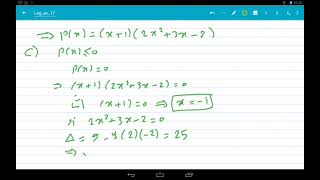 Log_ex_17
⇒ P(x) = (x+1)(2x²+3x-2)
C) P(x) ≤ 0
P(x) = 0
⇒ (x+1)(2x²+3x-2) = 0
(x+1) = 0 ⇒ x = -1
2x²+3x-2 = 0
Δ = 9 - 4(2)(-2) = 25
⇒